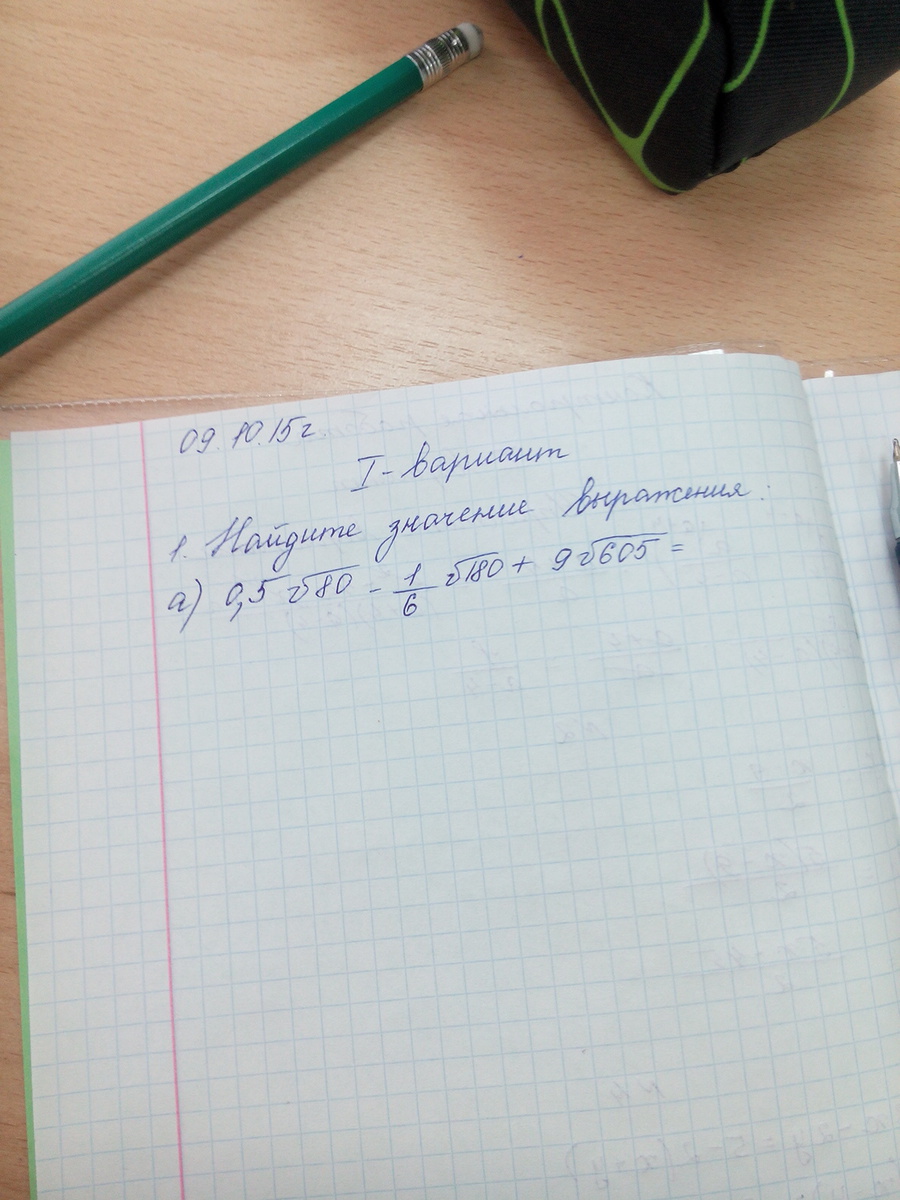 09.10.15г
I - вариант
1. Найдите значение выражения:
а) 0,5√80 - 1/6 √180 + 9√605 =